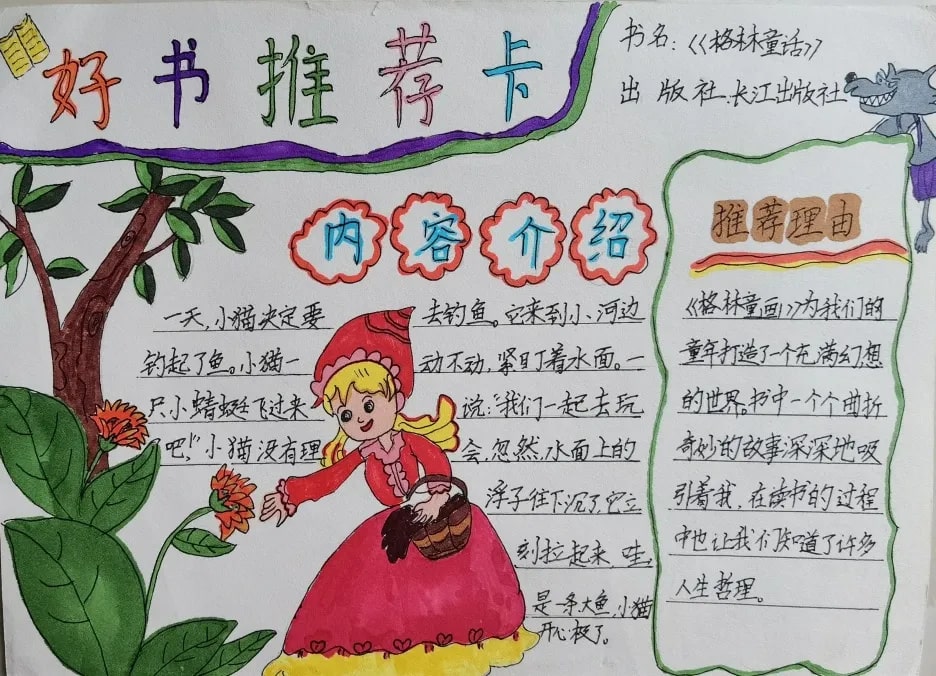 好书推荐卡
书名:《格林童话》
出版社:长江出版社
内容介绍
一天,小猫决定要去钓鱼。它来到小河边
钓起了鱼。小猫一动不动,紧盯着水面。一
只小蜻蜓飞过来说:“我们一起去玩
吧!”小猫没有理会,忽然,水面上的
浮子往下沉了,它立
刻拉起来,哇,
是一条大鱼,小猫
开心极了。
推荐理由
《格林童画》为我们的
童年打造了一个充满幻想
的世界。书中一个个曲折
奇妙的故事深深地吸
引着我,在读书的过程
中也让我们知道了许多
人生哲理。